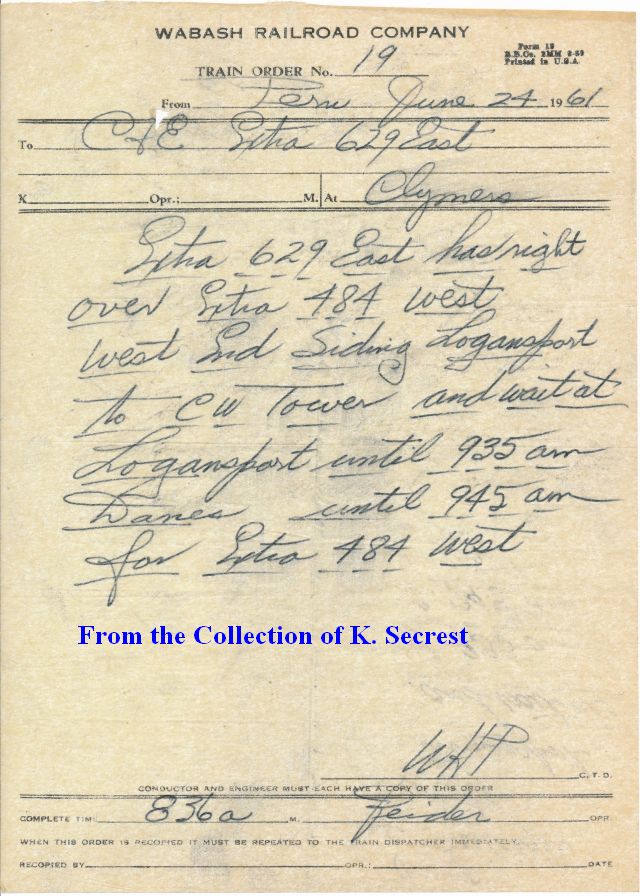 WABASH RAILROAD COMPANY
Form 19
R.B.Co. 2MM 2-59
Printed in U.S.A.
TRAIN ORDER No. 19
From Peru June 24 1961
To C&E Extra 629 East
K Opr.; M. At Clymers
Extra 629 East has right
over Extra 484 West
West End Siding Logansport
to CW Tower and wait at
Logansport until 935 am
Danes until 945 am
for Extra 484 West
From the Collection of K. Secrest
WHP C. T. D.
CONDUCTOR AND ENGINEER MUST EACH HAVE A COPY OF THIS ORDER
COMPLETE TIME 836a M. Feider OPR.
WHEN THIS ORDER IS RECOPIED IT MUST BE REPEATED TO THE TRAIN DISPATCHER IMMEDIATELY.
RECOPIED BY OPR.: DATE